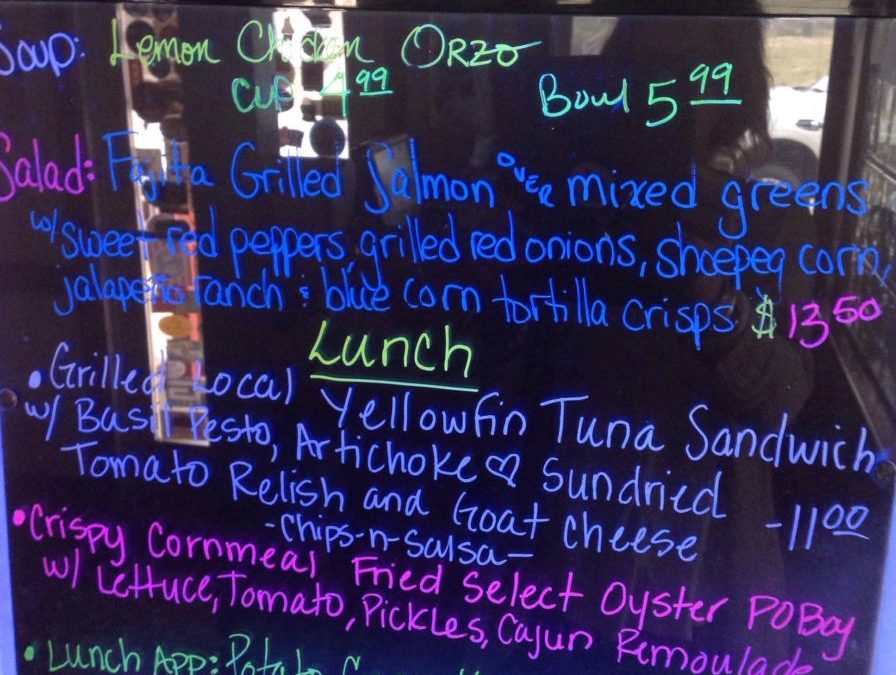 Soup: Lemon Chicken Orzo
Cup 4.99 Bowl 5.99
Salad: Fajita Grilled Salmon over mixed greens
w/ sweet red peppers, grilled red onions, shoepeg corn,
jalapeño ranch & blue corn tortilla crisps $13.50
Lunch
• Grilled Local Yellowfin Tuna Sandwich
w/ Basil Pesto, Artichoke ♡ Sundried
Tomato Relish and Goat Cheese -11.00
-Chips-n-Salsa-
• Crispy Cornmeal Fried Select Oyster PO Boy
w/ Lettuce, Tomato, Pickles, Cajun Remoulade
• Lunch App: Potato